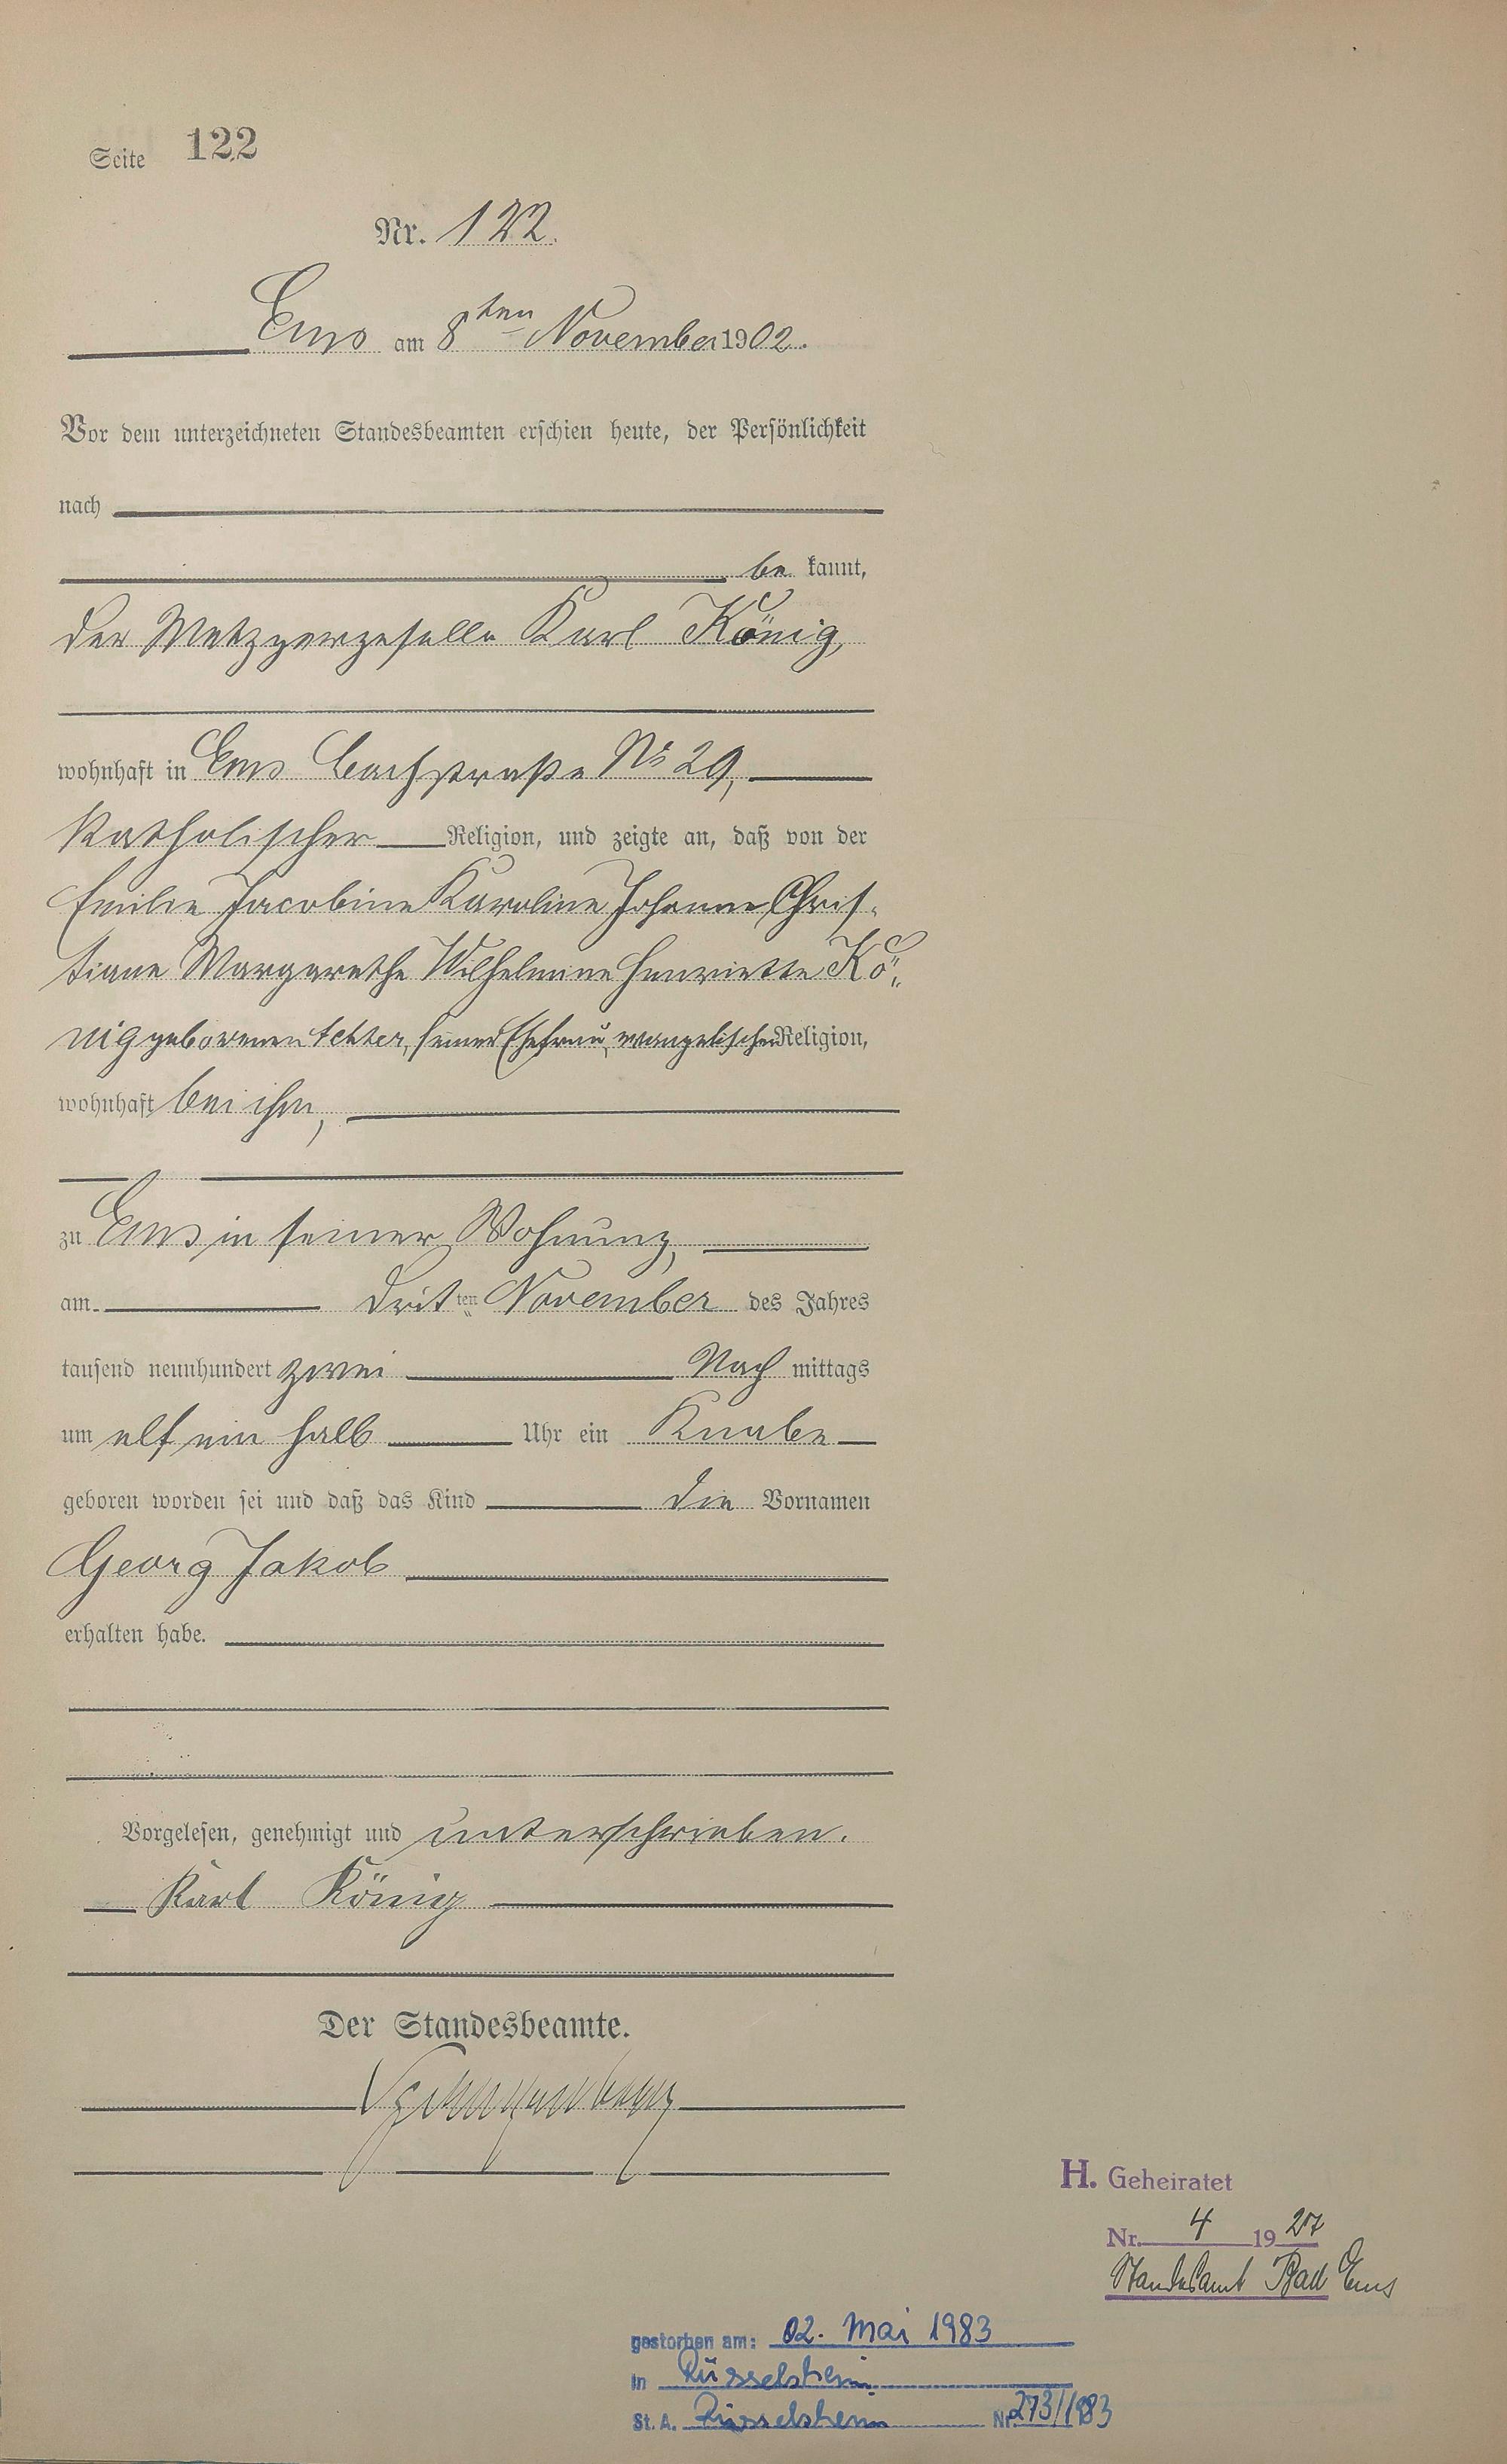 Seite 122
Nr. 122.
Ems am 8ten November 1902.
Vor dem unterzeichneten Standesbeamten erschien heute, der Persönlichkeit
nach
be kannt,
der Metzgergeselle Karl König,
wohnhaft in Ems Bachstraße No 29,
katholischer Religion, und zeigte an, daß von der
Emilie Jacobine Karoline Johanne Chris-
tiane Margarethe Wilhelmine Henriette Kö-
nig geborenen, seiner Ehefrau, evangelischer Religion,
wohnhaft bei ihm,
zu Ems in seiner Wohnung,
am dritten November des Jahres
tausend neunhundert zwei Nach mittags
um elf ein halb Uhr ein Knabe
geboren worden sei und daß das Kind die Vornamen
Georg Jakob
erhalten habe.
Vorgelesen, genehmigt und unterschrieben.
Karl König
Der Standesbeamte.
H. Geheiratet
Nr. 4 1927
Standesamt Bad Ems
gestorben am: 02. Mai 1983
in Rüsselsheim
St. A. Rüsselsheim Nr. 273/1983